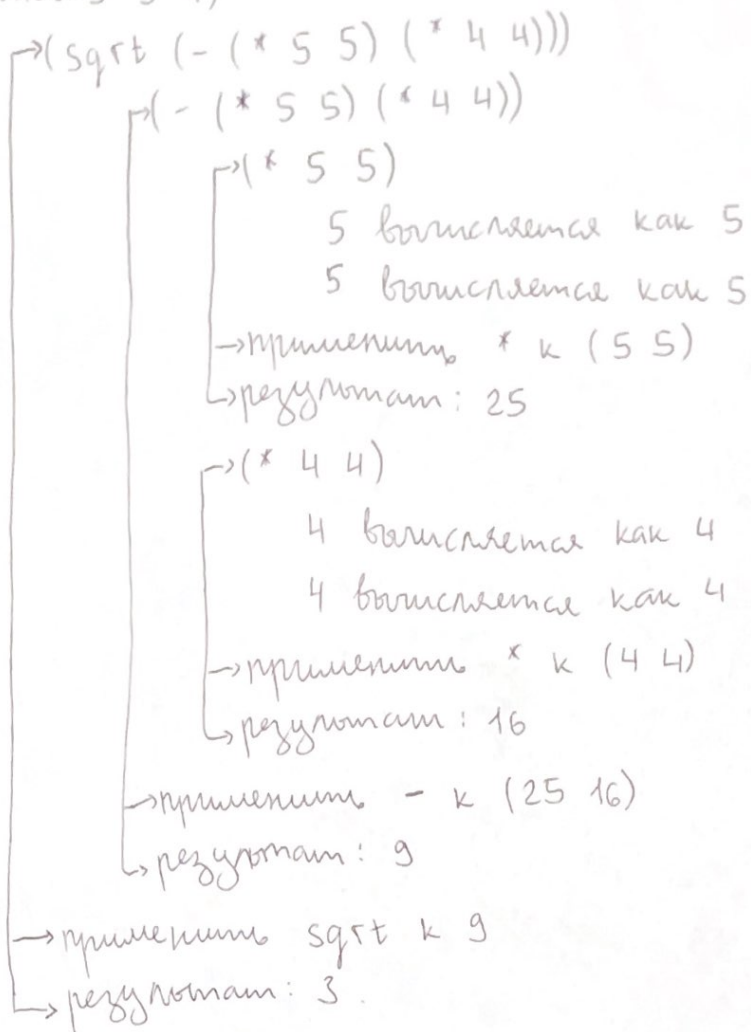 (sqrt (- (* 5 5) (* 4 4)))
(- (* 5 5) (* 4 4))
(* 5 5)
5 вычисляется как 5
5 вычисляется как 5
применить * к (5 5)
результат: 25
(* 4 4)
4 вычисляется как 4
4 вычисляется как 4
применить * к (4 4)
результат: 16
применить - к (25 16)
результат: 9
применить sqrt к 9
результат: 3.